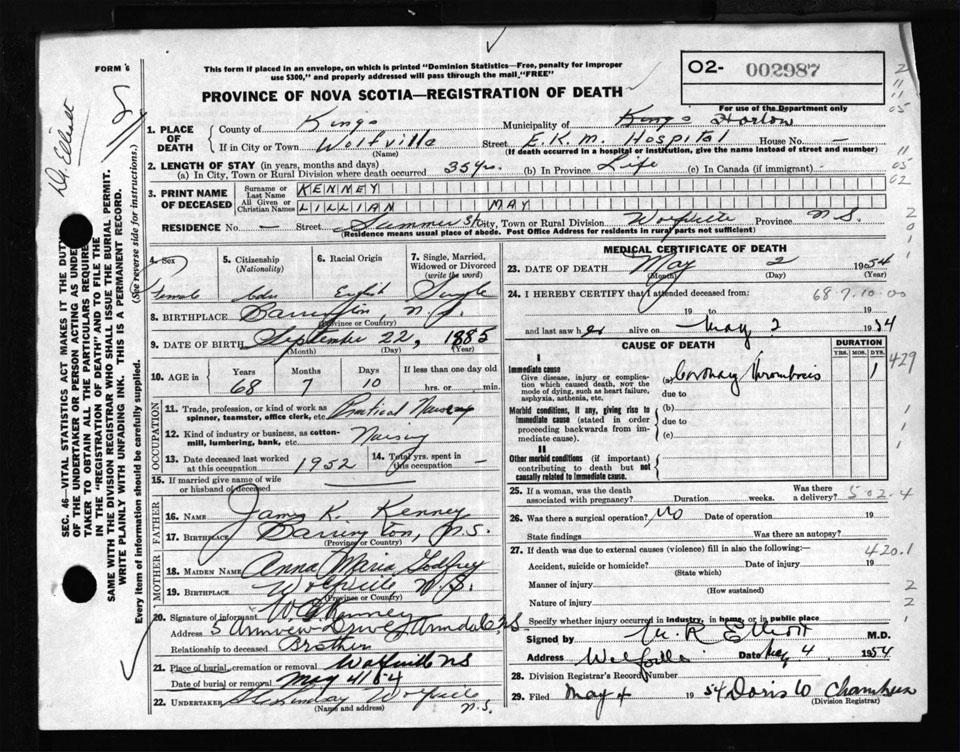 FORM 6
This form if placed in an envelope, on which is printed "Dominion Statistics—Free, penalty for improper
use $300," and properly addressed will pass through the mail "FREE"
O2- 002987
PROVINCE OF NOVA SCOTIA—REGISTRATION OF DEATH
For use of the Department only
Dr. Elliott
SEC. 46—VITAL STATISTICS ACT MAKES IT THE DUTY
OF THE UNDERTAKER OR PERSON ACTING AS UNDER-
TAKER TO OBTAIN ALL THE PARTICULARS REQUIRED
IN THE "REGISTRATION OF DEATH" AND TO FILE THE
SAME WITH THE DIVISION REGISTRAR WHO SHALL ISSUE THE BURIAL PERMIT.
WRITE PLAINLY WITH UNFADING INK. THIS IS A PERMANENT RECORD.
Every item of information should be carefully supplied. (See reverse side for instructions.)
1. PLACE OF DEATH County of Kings Municipality of Kings Horton
If in City or Town Wolfville Street E.K.M. Hospital House No. —
(Name) (If death occurred in a hospital or institution, give the name instead of street and number)
2. LENGTH OF STAY (in years, months and days)
(a) In City, Town or Rural Division where death occurred 35 yrs. (b) In Province Life (c) In Canada (if immigrant)
3. PRINT NAME OF DECEASED Surname or Last Name KENNEY
All Given or Christian Names LILLIAN MAY
RESIDENCE No. — Street Summer St City, Town or Rural Division Wolfville Province N.S.
(Residence means usual place of abode. Post Office Address for residents in rural parts not sufficient)
4. Sex Female
5. Citizenship (Nationality) Cdn
6. Racial Origin English
7. Single, Married, Widowed or Divorced (write the word) Single
8. BIRTHPLACE Barrington, N.S.
(Province or Country)
9. DATE OF BIRTH September 22, 1885
(Month) (Day) (Year)
10. AGE in Years 68 Months 7 Days 10 If less than one day hrs. or min.
OCCUPATION
11. Trade, profession, or kind of work as spinner, teamster, office clerk, etc. Practical Nursing
12. Kind of industry or business, as cotton-mill, lumbering, bank, etc. Nursing
13. Date deceased last worked at this occupation 1952
14. Total yrs. spent in this occupation —
15. If married give name of wife or husband of deceased
FATHER
16. NAME James K. Kenney
17. BIRTHPLACE Barrington, N.S.
(Province or Country)
MOTHER
18. MAIDEN NAME Anna Maria Godfrey
19. BIRTHPLACE Wolfville N.S.
(Province or Country)
20. Signature of informant Kenney
Address 5 Armview Drive Armdale, N.S.
Relationship to deceased Brother
21. Place of burial, cremation or removal Wolfville NS
Date of burial or removal May 4/54
22. UNDERTAKER Wolfville N.S.
(Name and address)
MEDICAL CERTIFICATE OF DEATH
23. DATE OF DEATH May 2 1954
(Month) (Day)
24. I HEREBY CERTIFY that I attended deceased from: 68-7-10-00
19 to 19
and last saw her alive on May 2 1954
CAUSE OF DEATH
DURATION
YRS. MOS. DYS.
I
Immediate cause
Give disease, injury or complication which caused death, not the mode of dying, such as heart failure, asphyxia, asthenia, etc.
(a) Coronary Thrombosis 1
429
due to
Morbid conditions, if any, giving rise to immediate cause (stated in order proceeding backwards from immediate cause).
(b)
due to
(c)
II
Other morbid conditions (if important) contributing to death but not causally related to immediate cause.
25. If a woman, was the death associated with pregnancy? Duration weeks. Was there a delivery? 502.4
26. Was there a surgical operation? No Date of operation 19
State findings Was there an autopsy?
27. If death was due to external causes (violence) fill in also the following:— 420.1
Accident, suicide or homicide? Date of injury 19
(State which)
Manner of injury
(How sustained)
Nature of injury
Specify whether injury occurred in industry, in home, or in public place
Signed by M. R. Elliott M.D.
Address Wolfville Date May 4 1954
28. Division Registrar's Record No.
29. Filed May 4 1954 Doris W Chambers
(Division Registrar)